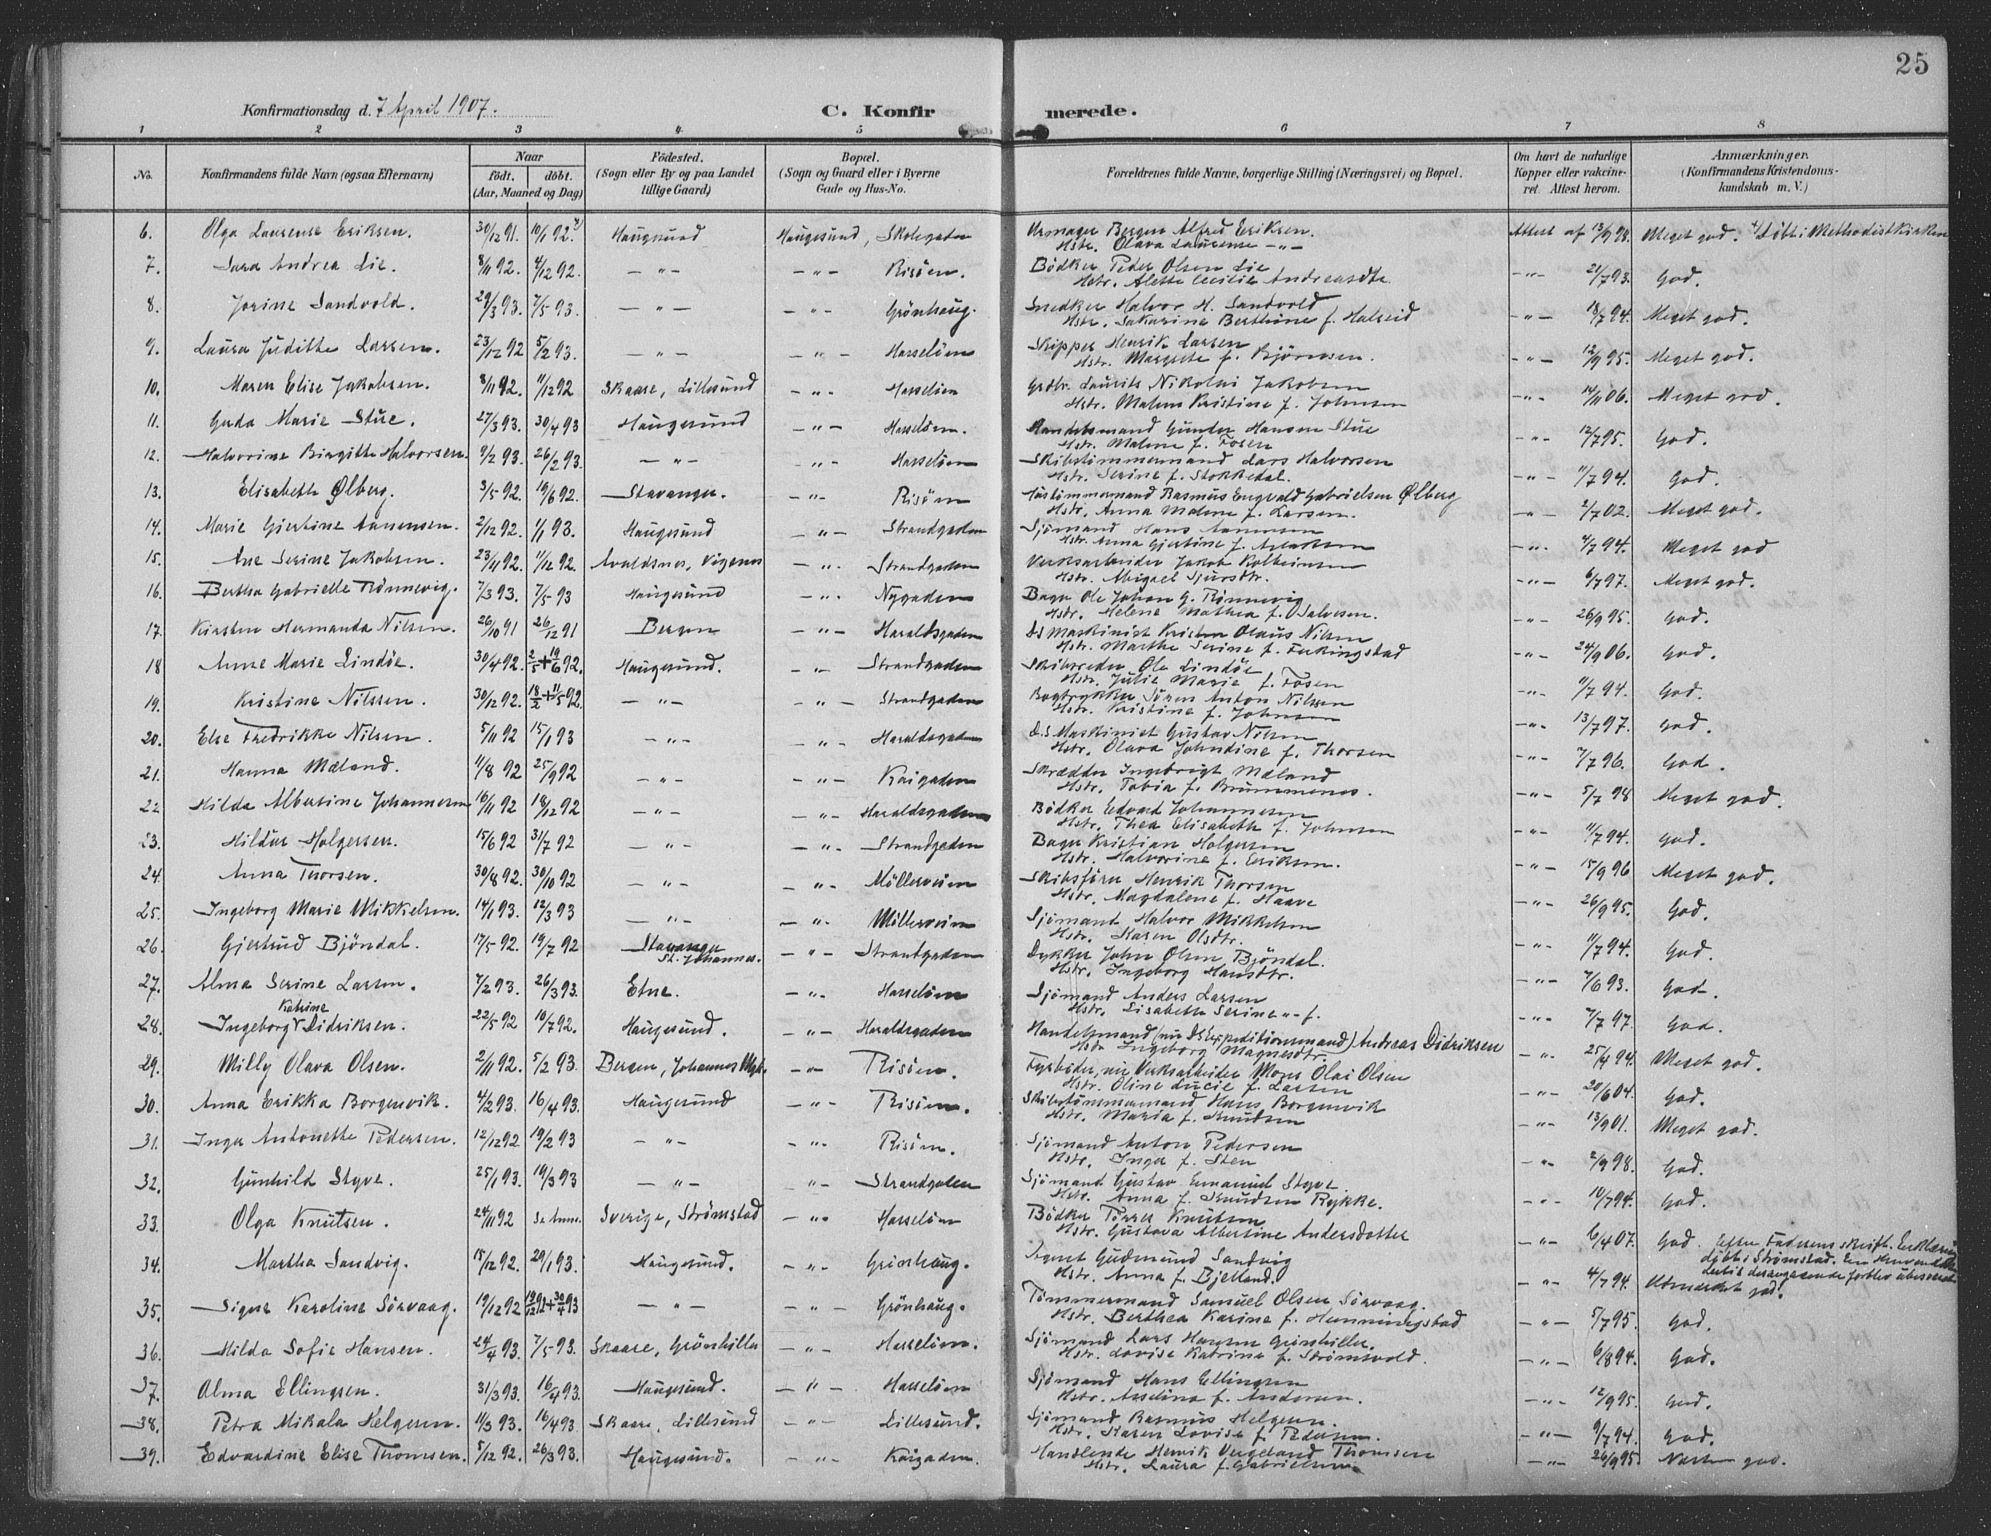 25
Konfirmationsdag d. 7 April 1907.
C. Konfirmerede.
1 2 3 4 5 6 7 8
No. Konfirmandens fulde Navn (ogsaa Efternavn) Naar født. døbt. (Aar, Maaned og Dag) Fødested. (Sogn eller By og paa Landet tillige Gaard) Bopæl. (Sogn og Gaard eller i Byerne Gade og Hus-No. Forældrenes fulde Navne, borgerlige Stilling (Næringsvei) og Bopæl. Om havt de naturlige Kopper eller vakcineret. Attest herom. Anmærkninger. (Konfirmandens Kristendomskundskab m. V.)
6. Olga Laurense Eriksen. 30/12 91. 10/1 92. Haugesund Haugesund, Skolegaden Urmager Bergen Alfred Eriksen. Attest af 13/9 98. Meget god. Döbt i Methodistkirken
Hstr. Olava Laurense -"-
7. Sara Andrea Lie. 8/11 92. 4/12 92. -"- -"- Risøen. Bödker Peder Olsen Lie -"- 21/7 93. God.
Hstr. Alette Cecilie Andreasdtr.
8. Jorine Sandvold. 29/3 93. 7/5 93. -"- -"- Grönhaug. Snedker Halvor H. Sandvold -"- 18/7 94. Meget god.
Hstr. Sakarine Berthine f. Halseid
9. Laura Juditte Larsen. 23/12 92 5/2 93. -"- -"- Hasseløen Skipper Henrik Larsen -"- 12/9 95. Meget god.
Hstr. Margrete f. Björnsen.
10. Maren Elise Jakobsen. 8/11 92. 11/12 92 Skaare, Lillesund -"- Hasseløen Grdbr. Laurits Nikolai Jakobsen -"- 14/11 06. Meget god.
Hstr. Malene Kristine f. Johnsen
11. Gerda Marie Stue. 27/3 93. 30/4 93 Haugesund -"- Hasseløen. Handelsmand Gunder Hansen Stue -"- 12/7 95. God.
Hstr. Malene f. Fosen
12. Halvorine Birgitte Halvorsen. 9/2 93. 26/2 93. -"- -"- Hasseløen Skibstimmermand Lars Halvorsen -"- 11/7 94. God.
Hstr. Serine f. Stokkedal.
13. Elisabeth Ølberg. 3/5 92. 19/6 92. Stavanger. -"- Risøen Hustimmermand Rasmus Engvald Gabrielsen Ølberg -"- 2/7 02. Meget god.
Hstr. Anna Malene f. Larsen.
14. Marie Gjertine Aanensen. 2/12 92. 1/1 93. Haugesund -"- Strandgaden Sjömand Hans Aanensen -"- 4/7 94. Meget god
Hstr. Anna Gjertine f. Aslaksen
15. Ane Serine Jakobsen. 23/11 92. 11/12 92. Avaldsnes, Vigenes -"- Strandgaden Verksarbeider Jakob Kolbeinsen -"- 6/7 97. Meget god.
Hstr. Abigael Sjursdtr.
16. Bertha Gabrielle Rönnevig. 7/3 93. 7/5 93 Haugesund -"- Nygaden Bager Ole Johan G. Rönnevig -"- 26/9 95. God.
Hstr. Helene Mathea f. Salvesen.
17. Kirsten Hermanda Nilsen. 26/10 91 26/12 91 Bergen -"- Haraldsgaden DS Maskinist Kristen Olaus Nilsen -"- 24/9 06. God.
Hstr. Marthe Serine f. Ferkingstad
18 Anne Marie Lindöe. 30/4 92. 2/5 + 19/6 92. Haugesund. -"- Strandgaden Skibsreder Ole Lindöe -"- 11/7 94. God.
Hstr. Julie Marie f. Fosen
19. Kristine Nilssen. 30/12 92. 18/2 + 11/5 92. -"- -"- Strandgaden Bogtrykker Sören Anton Nilssen -"- 13/7 97. God.
Hstr. Kristine f. Johnsen
20. Else Fredrikke Nilsen. 5/11 92 15/1 93 -"- -"- Haraldsgaden D.S Maskinist Gustav Nilsen -"- 7/7 96. God.
Hstr. Olava Johndine f. Thorsen
21. Hanna Mæland. 11/8 92 25/9 92 -"- -"- Kaigaden Skrædder Ingebrigt Mæland -"- 5/7 98 Meget god.
Hstr. Tobia f. Brummenes.
22 Hilda Albertine Johannesen 16/11 92 18/12 92 -"- -"- Haraldsgaden Bödker Edvard Johannesen -"- 11/7 94. God.
Hstr. Thea Elisabeth f. Johnsen
23. Hildur Holgersen. 15/6 92 31/7 92 -"- -"- Strandgaden Bager Kristian Holgersen -"- 15/9 96 Meget god.
Hstr. Halvorine f. Eriksen.
24. Anna Thorsen. 30/8 92. 30/10 92 -"- -"- Möllerveien Skibsförer Henrik Thorsen -"- 26/9 95. God.
Hstr. Magdalene f. Haave
25. Ingeborg Marie Mikkelsen. 14/1 93. 12/3 93 -"- -"- Möllerveien Sjömand Halvor Mikkelsen -"- 11/7 94. God.
Hstr. Karen Olsdtr.
26. Gjertrud Bjöndal. 17/5 92. 19/7 92 Stavanger St. Johannes. -"- Strandgaden Dykker John Olsen Bjöndal. -"- 7/6 93. God.
Hstr. Ingeborg Hansdtr.
27. Alma Serine Larsen. 7/2 93. 26/3 93. Etne. -"- Hasseløen Sjömand Anders Larsen -"- 7/7 97. God.
Hstr. Lisabeth Serine -"- f.
28. Ingeborg Katrine Didriksen. 22/5 92 10/7 92. Haugesund. -"- Haraldsgaden Handelsmand (nu DS Expeditionsmand) Andreas Didriksen -"- 25/4 94. Meget god.
Hstr. Ingeborg Magnesdtr.
29. Milly Olava Olsen. 2/11 92. 5/2 93. Bergen, Johannes Mgh. -"- Risøen. Fyrböder, nu Verksarbeider Mons Olai Olsen -"- 20/6 04. God.
Hstr. Oline Lucie f. Larsen
30. Anna Erikka Borgenvik. 4/2 93. 16/4 93. Haugesund -"- Risøen. Skibstömmermand Hans Borgenvik -"- 13/9 01. Meget god.
Hstr. Maria f. Knudsen
31. Inger Antonette Pedersen. 12/12 92 19/2 93 -"- -"- Risøen. Sjömand Anton Pedersen -"- 2/9 98. God.
Hstr. Inger f. Sten
32. Gunhild Styve. 25/1 93. 19/3 93 -"- -"- Strandgaden Sjömand Gustav Emanuel Styve -"- 10/7 94. God.
Hstr. Anna f. Knudsen Rykke.
33. Olga Knutsen. 24/11 92 Se Anm. Sverige, Strømstad -"- Hasseløen Bödker Törres Knutsen -"- 6/4 07. God. Efter Faderens skriftl. Erklæring döbt i Strømstad.
Hstr. Gustava Albertine Andersdotter
34. Martha Sandvig. 15/12 92. 29/1 93. Haugesund. -"- Grönhaug. Agent Gudmund Sandvig -"- 4/7 94. Udmerket god.
Hstr. Anna f. Bjelland.
35. Signe Karoline Sörvaag. 19/12 92 19/12 92 + 30/4 93 -"- -"- Grönhaug. Tömmermand Samuel Olsen Sörvaag. -"- 5/7 95. God.
Hstr. Berthea Karine f. Henningstad
36. Hilda Sofie Hansen. 24/4 93. 7/5 93. Skaare, Grönhiller -"- Hasseløen. Sjömand Lars Hansen Grönhiller. -"- 6/8 94. God.
Hstr. Lovise Katrine f. Strömsvold.
37. Alma Ellingsen. 31/3 93. 16/4 93. Haugesund. -"- Hasseløen Sjömand Hans Ellingsen -"- 12/9 95. God.
Hstr. Asseline f. Andersen.
38. Petra Mikala Helgesen. 11/3 93. 16/4 93. Skaare, Lillesund -"- Lillesund. Sjömand Rasmus Helgesen. -"- 9/7 94. God.
Hstr. Karen Lovise f. Pedersen.
39. Edvardine Elise Thomsen. 5/12 92. 26/3 93. Haugesund. -"- Kaigaden. Handlende Henrik Vergeland Thomsen -"- 26/9 95. Næsten god.
Hstr. Laura f. Gabrielsen.